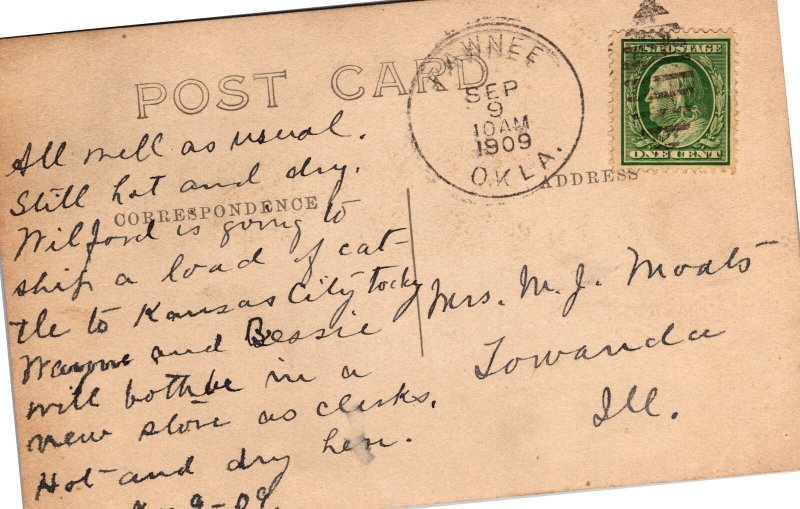 POST CARD
PAWNEE
SEP
9
10 AM
1909
OKLA.
U.S. POSTAGE
ONE CENT
CORRESPONDENCE
ADDRESS
All well as usual.
Still hot and dry.
Wilford is going to
ship a load of cat-
tle to Kansas City tody
Wayne and Bessie
will both be in a
new store as clerks.
Hot and dry her.
9-09.
Mrs. M. J. Moats
Towanda
Ill.